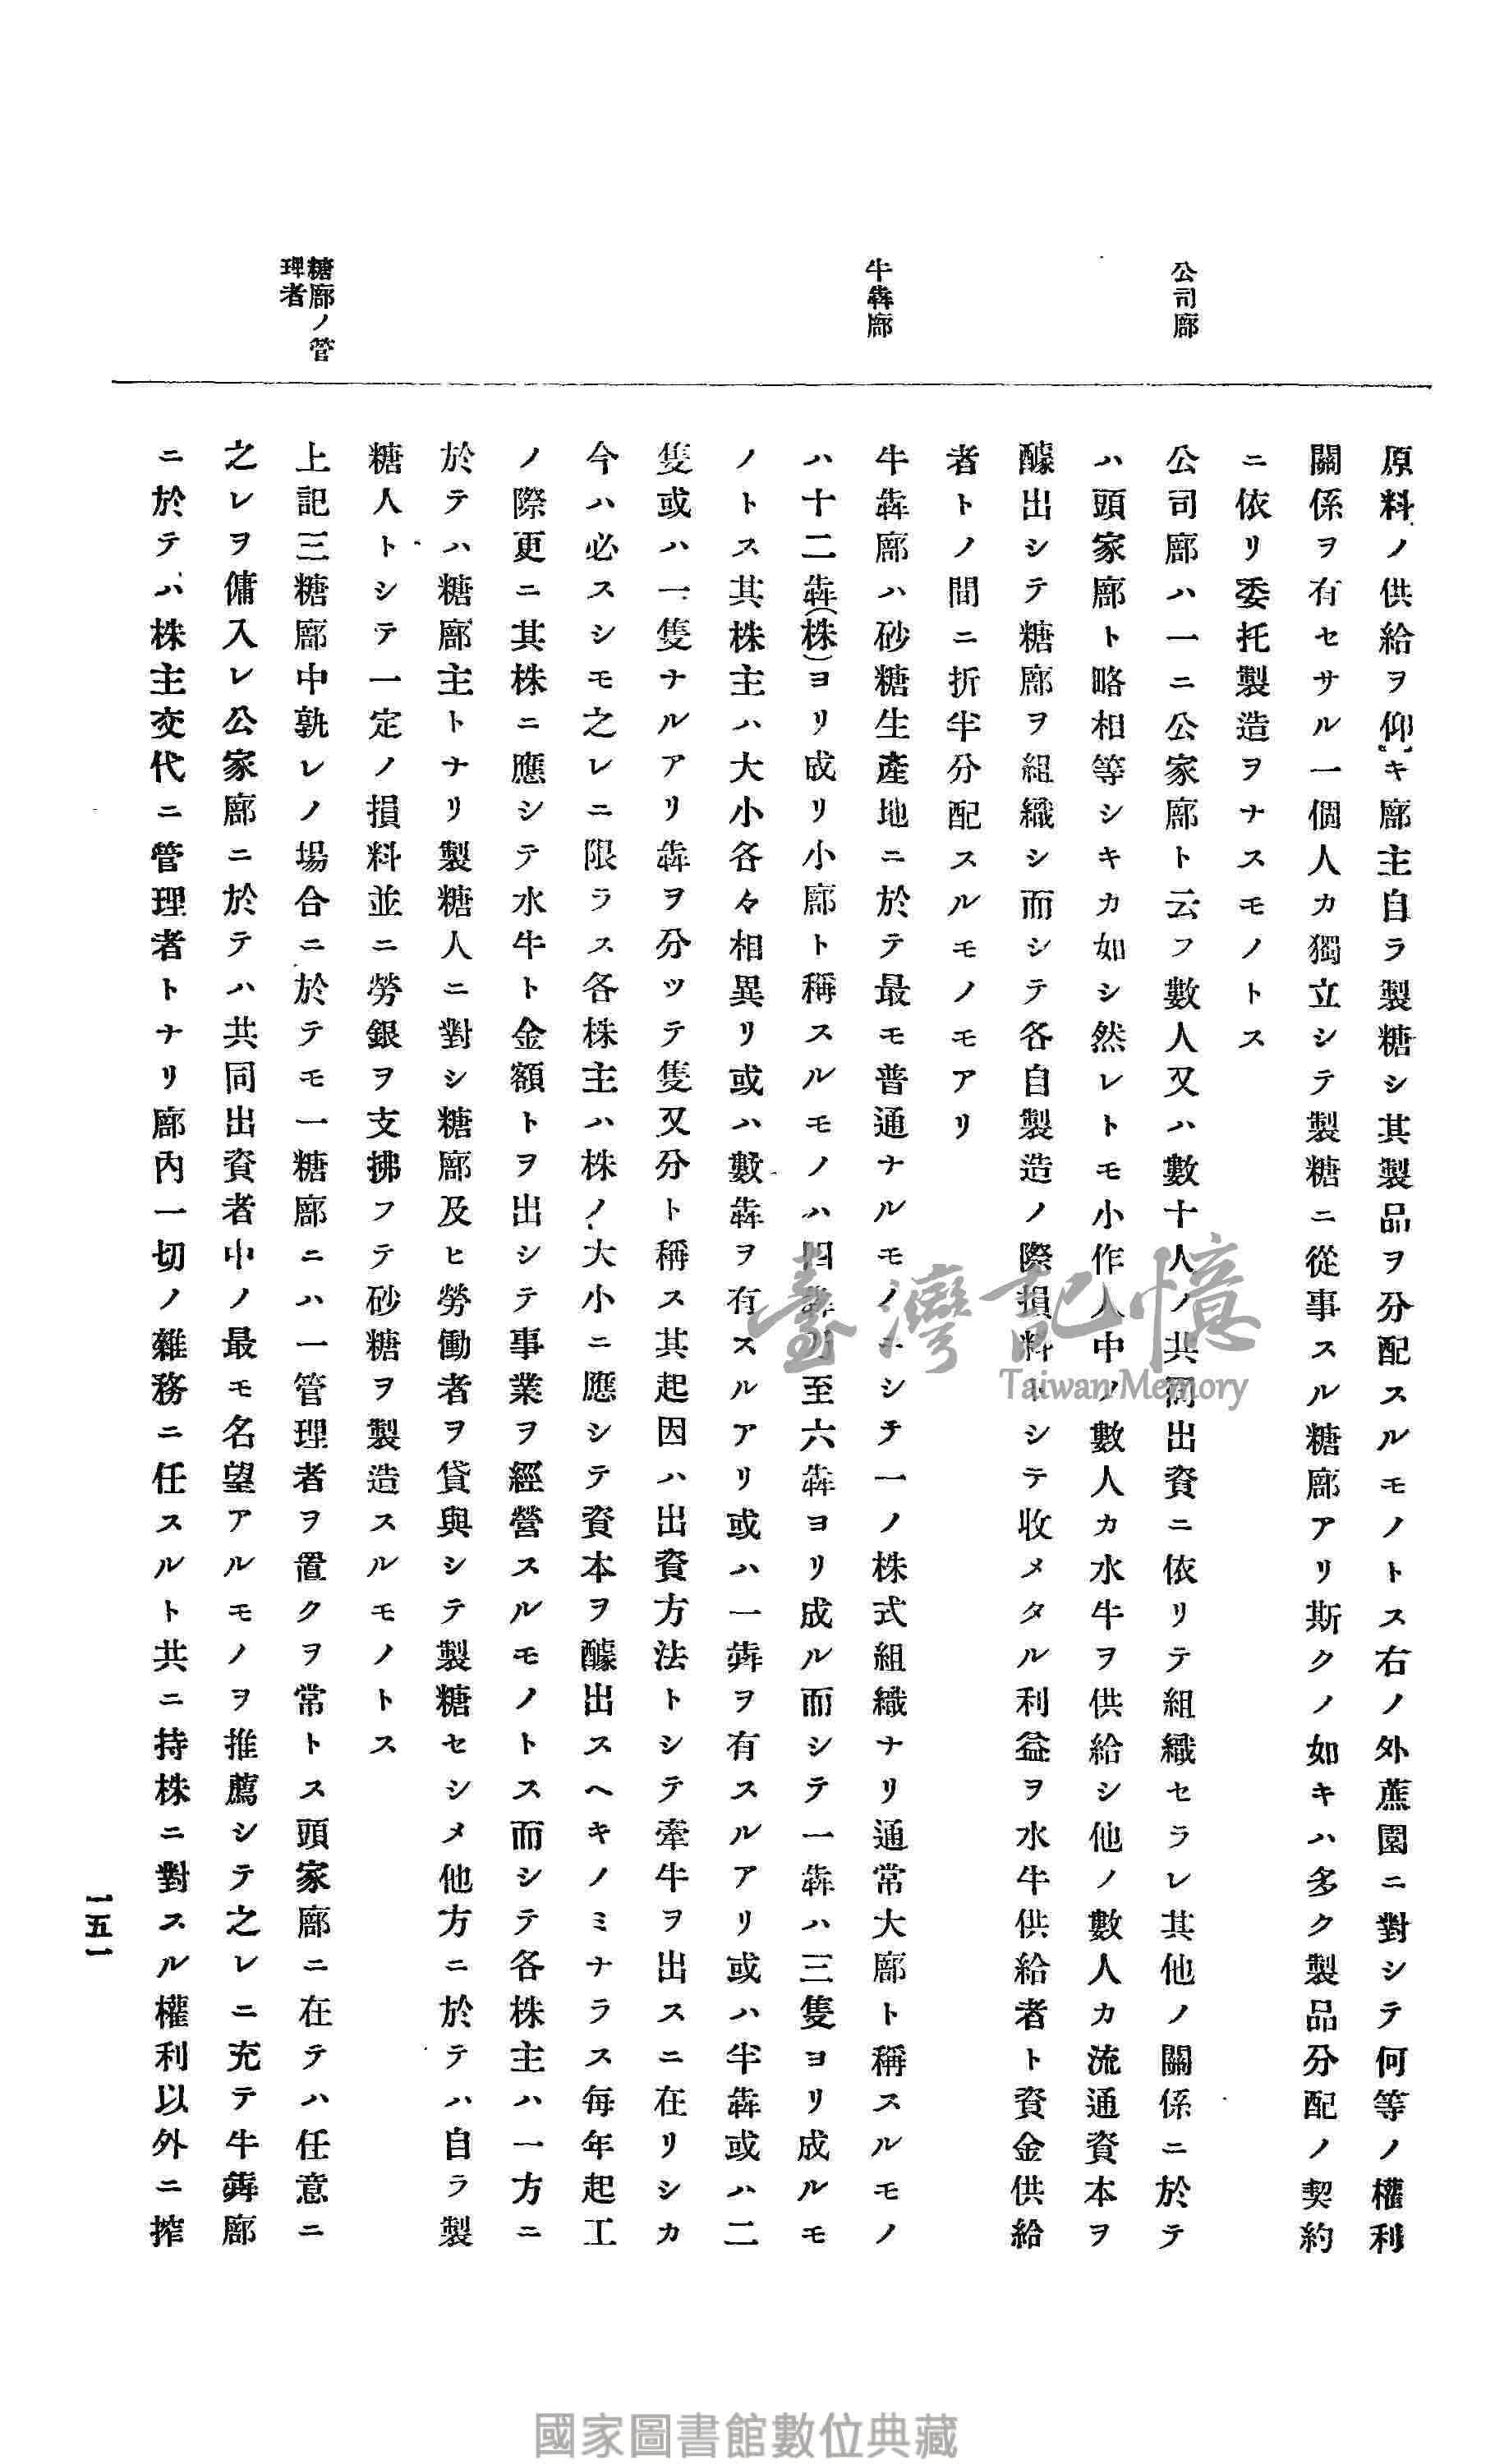 公司廍
牛犇廍
糖廍ノ管
理者
原料ノ供給ヲ仰キ廍主自ラ製糖シ其製品ヲ分配スルモノトス右ノ外蔗園ニ對シテ何等ノ權利
關係ヲ有セサル一個人カ獨立シテ製糖ニ從事スル糖廍アリ斯クノ如キハ多ク製品分配ノ契約
ニ依リ委托製造ヲナスモノトス
公司廍ハ一ニ公家廍ト云フ數人又ハ數十人ノ共同出資ニ依リテ組織セラレ其他ノ關係ニ於テ
ハ頭家廍ト略相等シキカ如シ然レトモ小作人中ノ數人カ水牛ヲ供給シ他ノ數人カ流通資本ヲ
醵出シテ糖廍ヲ組織シ而シテ各自製造ノ際損料トシテ收メタル利益ヲ水牛供給者ト資金供給
者トノ間ニ折半分配スルモノモアリ
牛犇廍ハ砂糖生產地ニ於テ最モ普通ナルモノニシテ一ノ株式組織ナリ通常大廍ト稱スルモノ
ハ十二犇(株)ヨリ成リ小廍ト稱スルモノハ四犇乃至六犇ヨリ成ル而シテ一犇ハ三隻ヨリ成ルモ
ノトス其株主ハ大小各々相異リ或ハ數犇ヲ有スルアリ或ハ一犇ヲ有スルアリ或ハ半犇或ハ二
隻或ハ一隻ナルアリ犇ヲ分ツテ隻又分ト稱ス其起因ハ出資方法トシテ牽牛ヲ出スニ在リシカ
今ハ必スシモ之レニ限ラス各株主ハ株ノ大小ニ應シテ資本ヲ醵出スヘキノミナラス每年起工
ノ際更ニ其株ニ應シテ水牛ト金額トヲ出シテ事業ヲ經營スルモノトス而シテ各株主ハ一方ニ
於テハ糖廍主トナリ製糖人ニ對シ糖廍及ヒ勞働者ヲ貸與シテ製糖セシメ他方ニ於テハ自ラ製
糖人トシテ一定ノ損料並ニ勞銀ヲ支拂フテ砂糖ヲ製造スルモノトス
上記三糖廍中孰レノ場合ニ於テモ一糖廍ニハ一管理者ヲ置クヲ常トス頭家廍ニ在テハ任意ニ
之レヲ傭入レ公家廍ニ於テハ共同出資者中ノ最モ名望アルモノヲ推薦シテ之レニ充テ牛犇廍
ニ於テハ株主交代ニ管理者トナリ廍內一切ノ雜務ニ任スルト共ニ持株ニ對スル權利以外ニ搾
一五一
臺灣記憶
Taiwan Memory
國家圖書館數位典藏